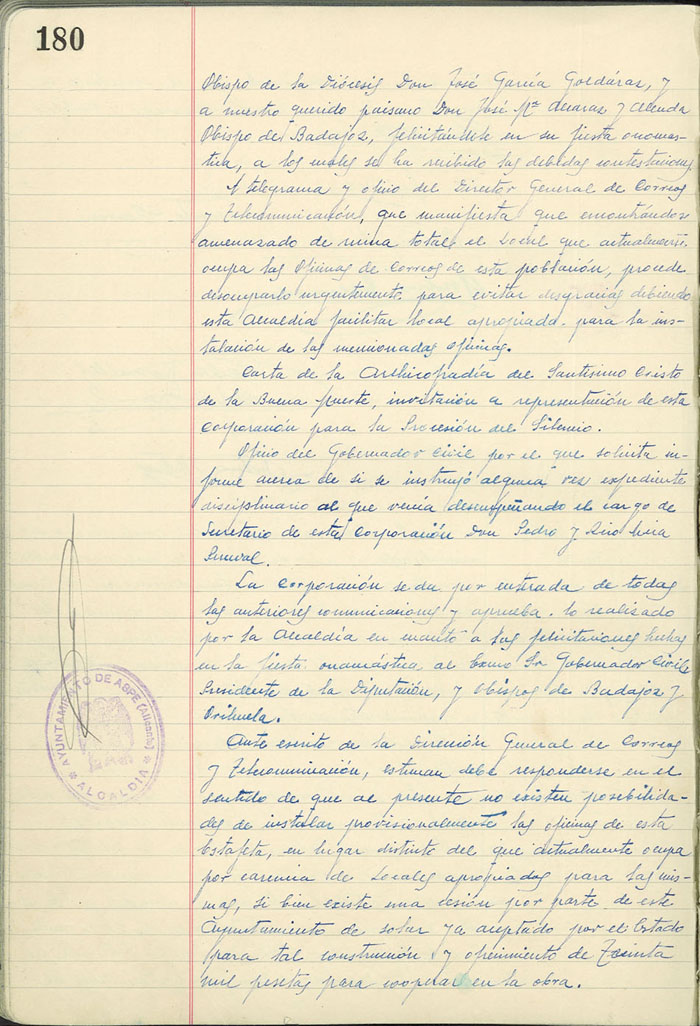 180
Obispo de la Diócesis Don José García Goldáraz, y
a nuestro querido paisano Don José Mª Alcaraz y Alenda
Obispo de Badajoz, felicitándole en su fiesta onomás-
tica, a los cuales se ha recibido las debidas contestaciones
A telegrama y oficio del Director General de Correos
y Telecomunicación, que manifiesta que encontrándose
amenazado de ruina total el Local que actualmente
ocupa las Oficinas de Correos de esta población, procede
desocuparlo urgentemente para evitar desgracias debiendo
esta Alcaldía facilitar local apropiado para la ins-
talación de las mencionadas oficinas.
Carta de la Archicofradía del Santísimo Cristo
de la Buena Muerte, invitación a representación de esta
Corporación para la Procesión del Silencio.
Oficio del Gobernador Civil por el que solicita in-
forme acerca de si se instruyó alguna vez expediente
disciplinario al que venía desempeñando el cargo de
Secretario de esta Corporación Don Pedro
La Corporación se da por enterada de todas
las anteriores comunicaciones y aprueba lo realizado
por la Alcaldía en cuanto a las felicitaciones hechas
en la fiesta onomástica al Excmo Sr Gobernador Civil,
Presidente de la Diputación, y Obispos de Badajoz y
Orihuela.
Ante escrito de la Dirección General de Correos
y Telecomunicación, estiman debe responderse en el
sentido de que al presente no existen posibilida-
des de instalar provisionalmente las oficinas de esta
Estafeta, en lugar distinto del que actualmente ocupa
por carencia de Locales apropiados para las mis-
mas, si bien existe una cesión por parte de este
Ayuntamiento de solar ya aceptado por el Estado
para tal construcción y ofrecimiento de Treinta
mil pesetas para cooperar en la obra.
AYUNTAMIENTO DE ASPE (Alicante)
* ALCALDIA *